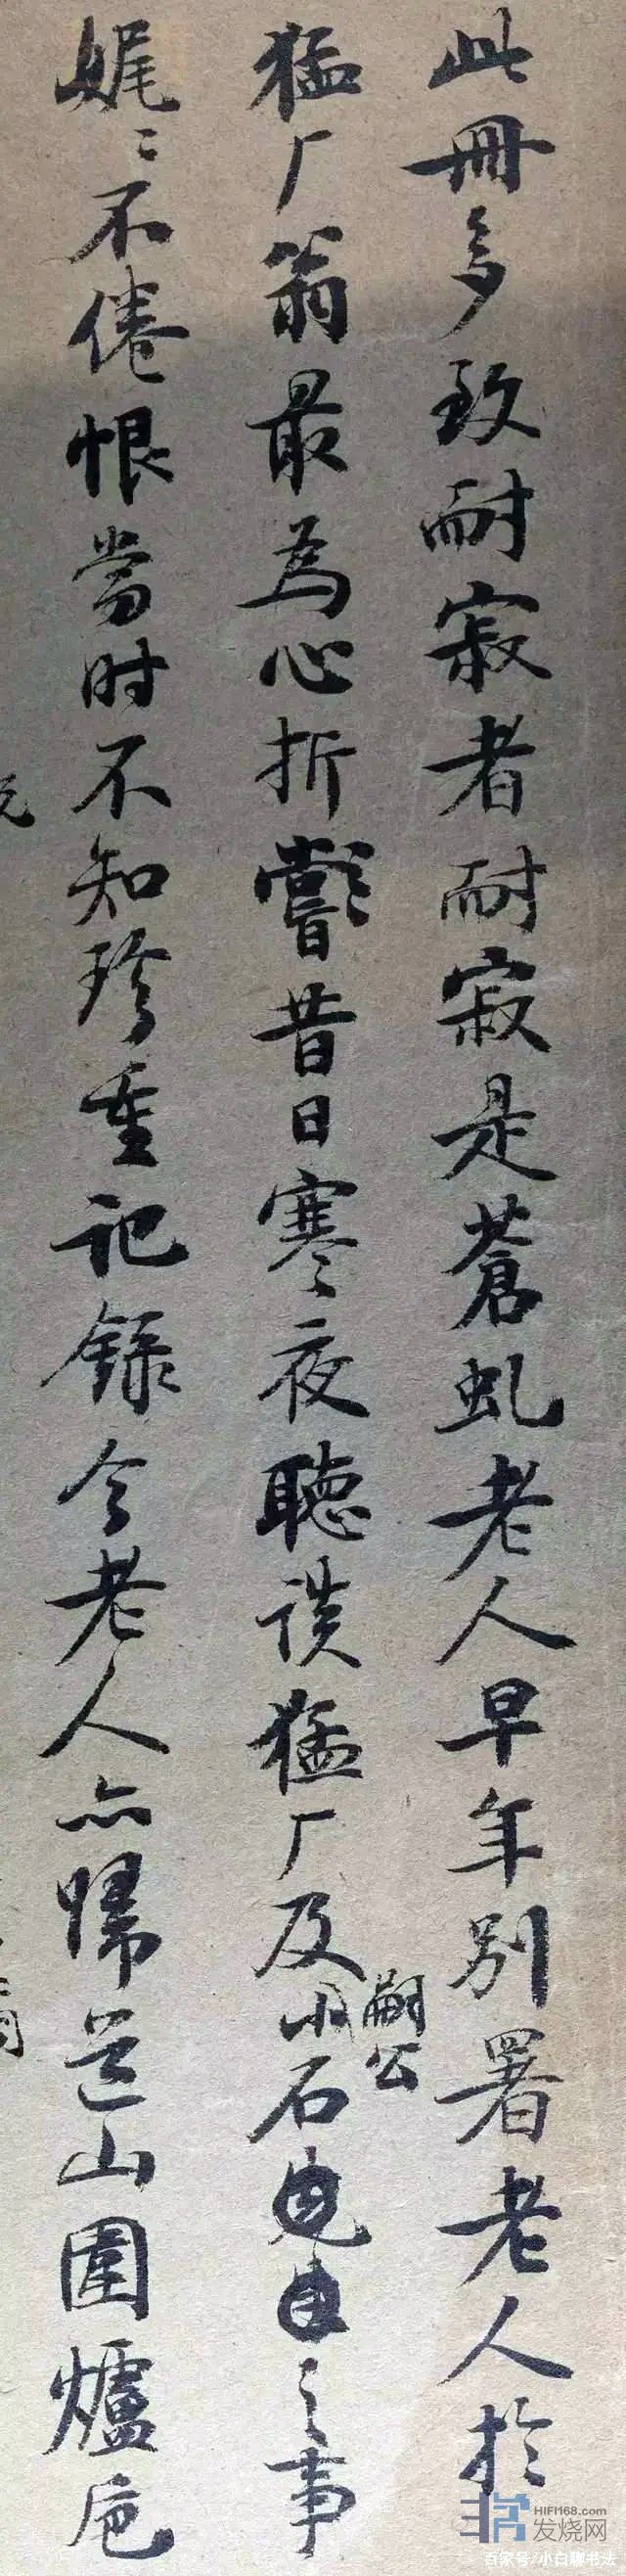 此冊多致耐寂者耐寂是蒼虬老人早年別署老人於
猛厂翁最為心折嘗昔日寒夜聽談猛厂及小石
嗣公
之事
娓〻不倦恨當时不知珍重记錄今老人亦歸道山圍爐
HIFI168.com
发烧网
百家号/小白聊书法